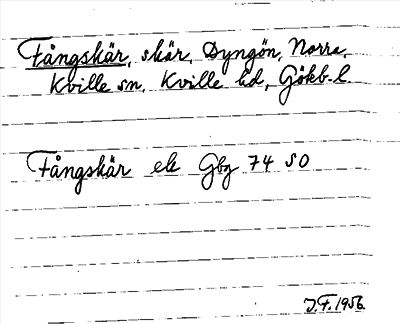 Fångskär, skär, Dyngön, Norra,
Kville sn, Kville hd, Gökb. l.
Fångskär ek Gbg 74 SO
J.F. 1956.